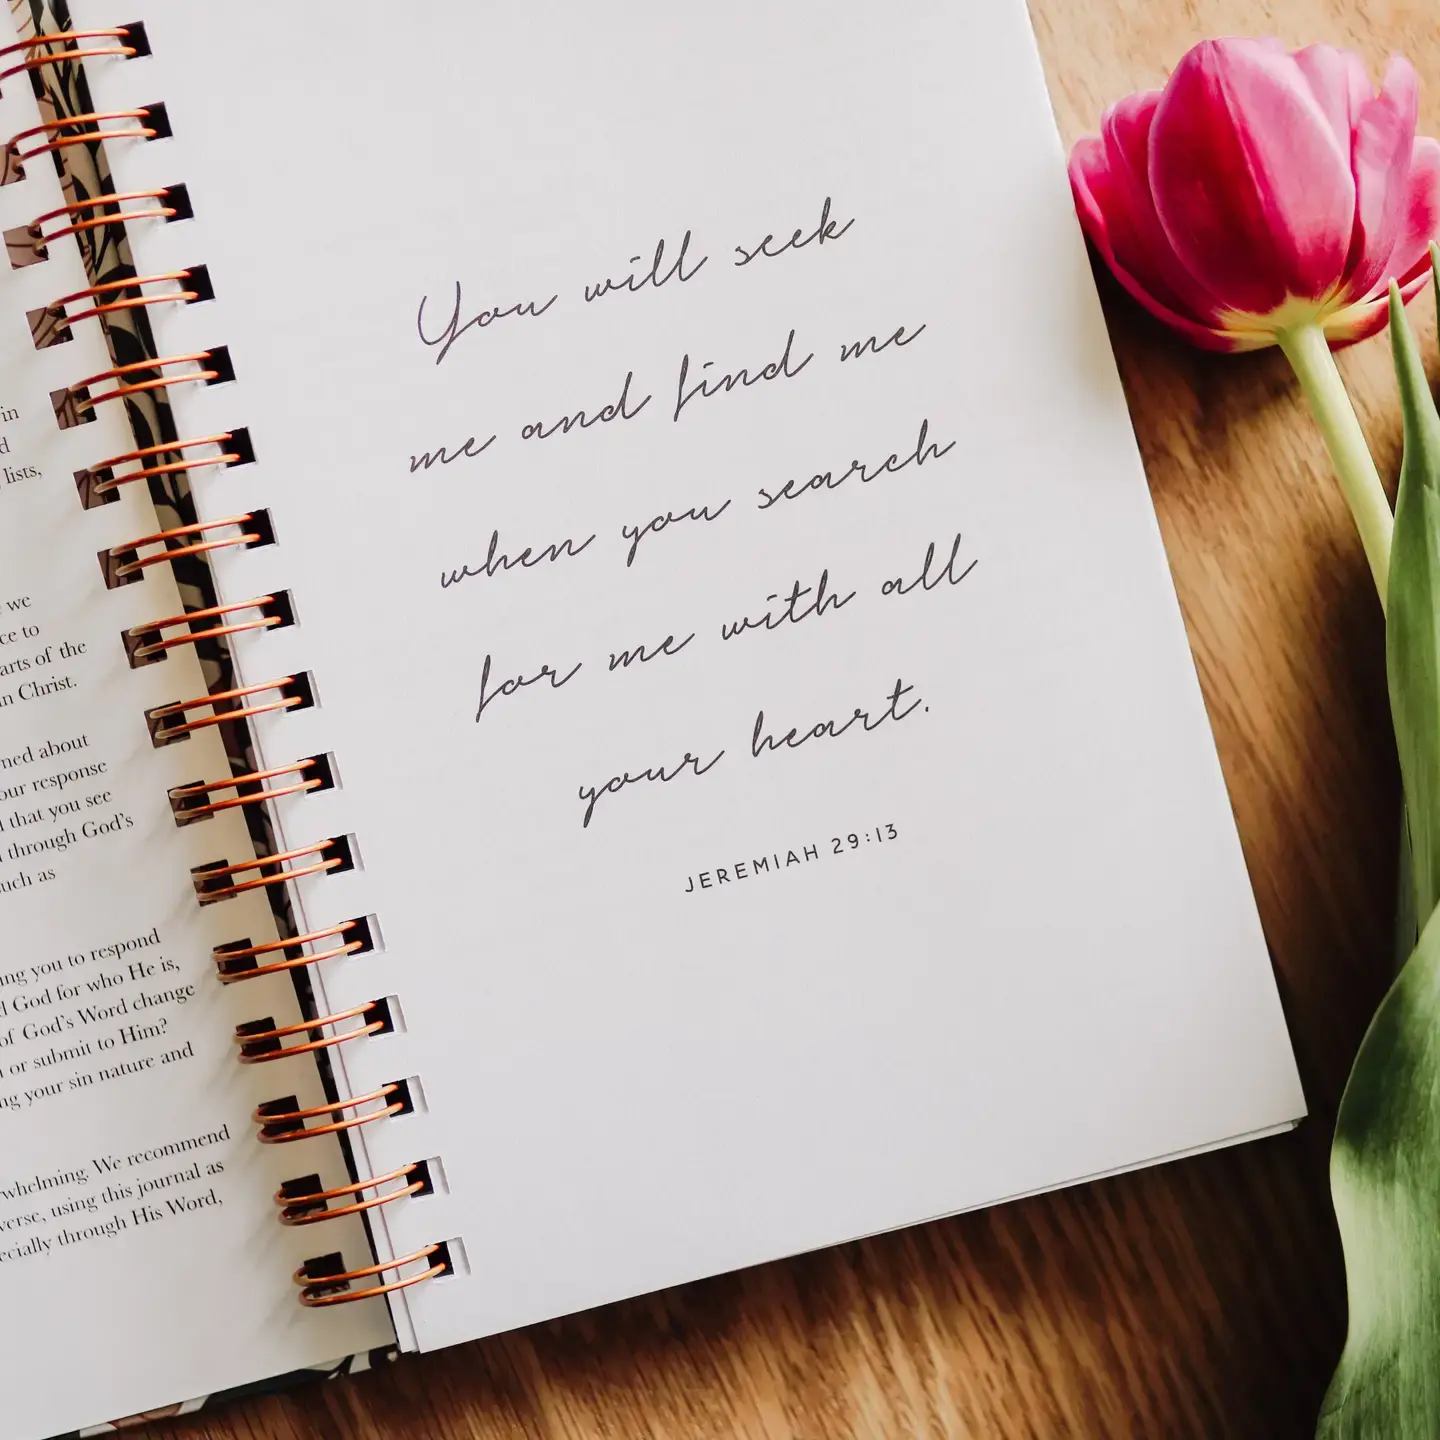 in
d
lists,
we
ce to
arts of the
in Christ.
ned about
our response
that you see
through God's
such as
ing you to respond
God for who He is,
of God's Word change
or submit to Him?
ng your sin nature and
rwhelming. We recommend
verse, using this journal as
ecially through His Word,
You will seek
me and find me
when you search
for me with all
your heart.
JEREMIAH 29:13